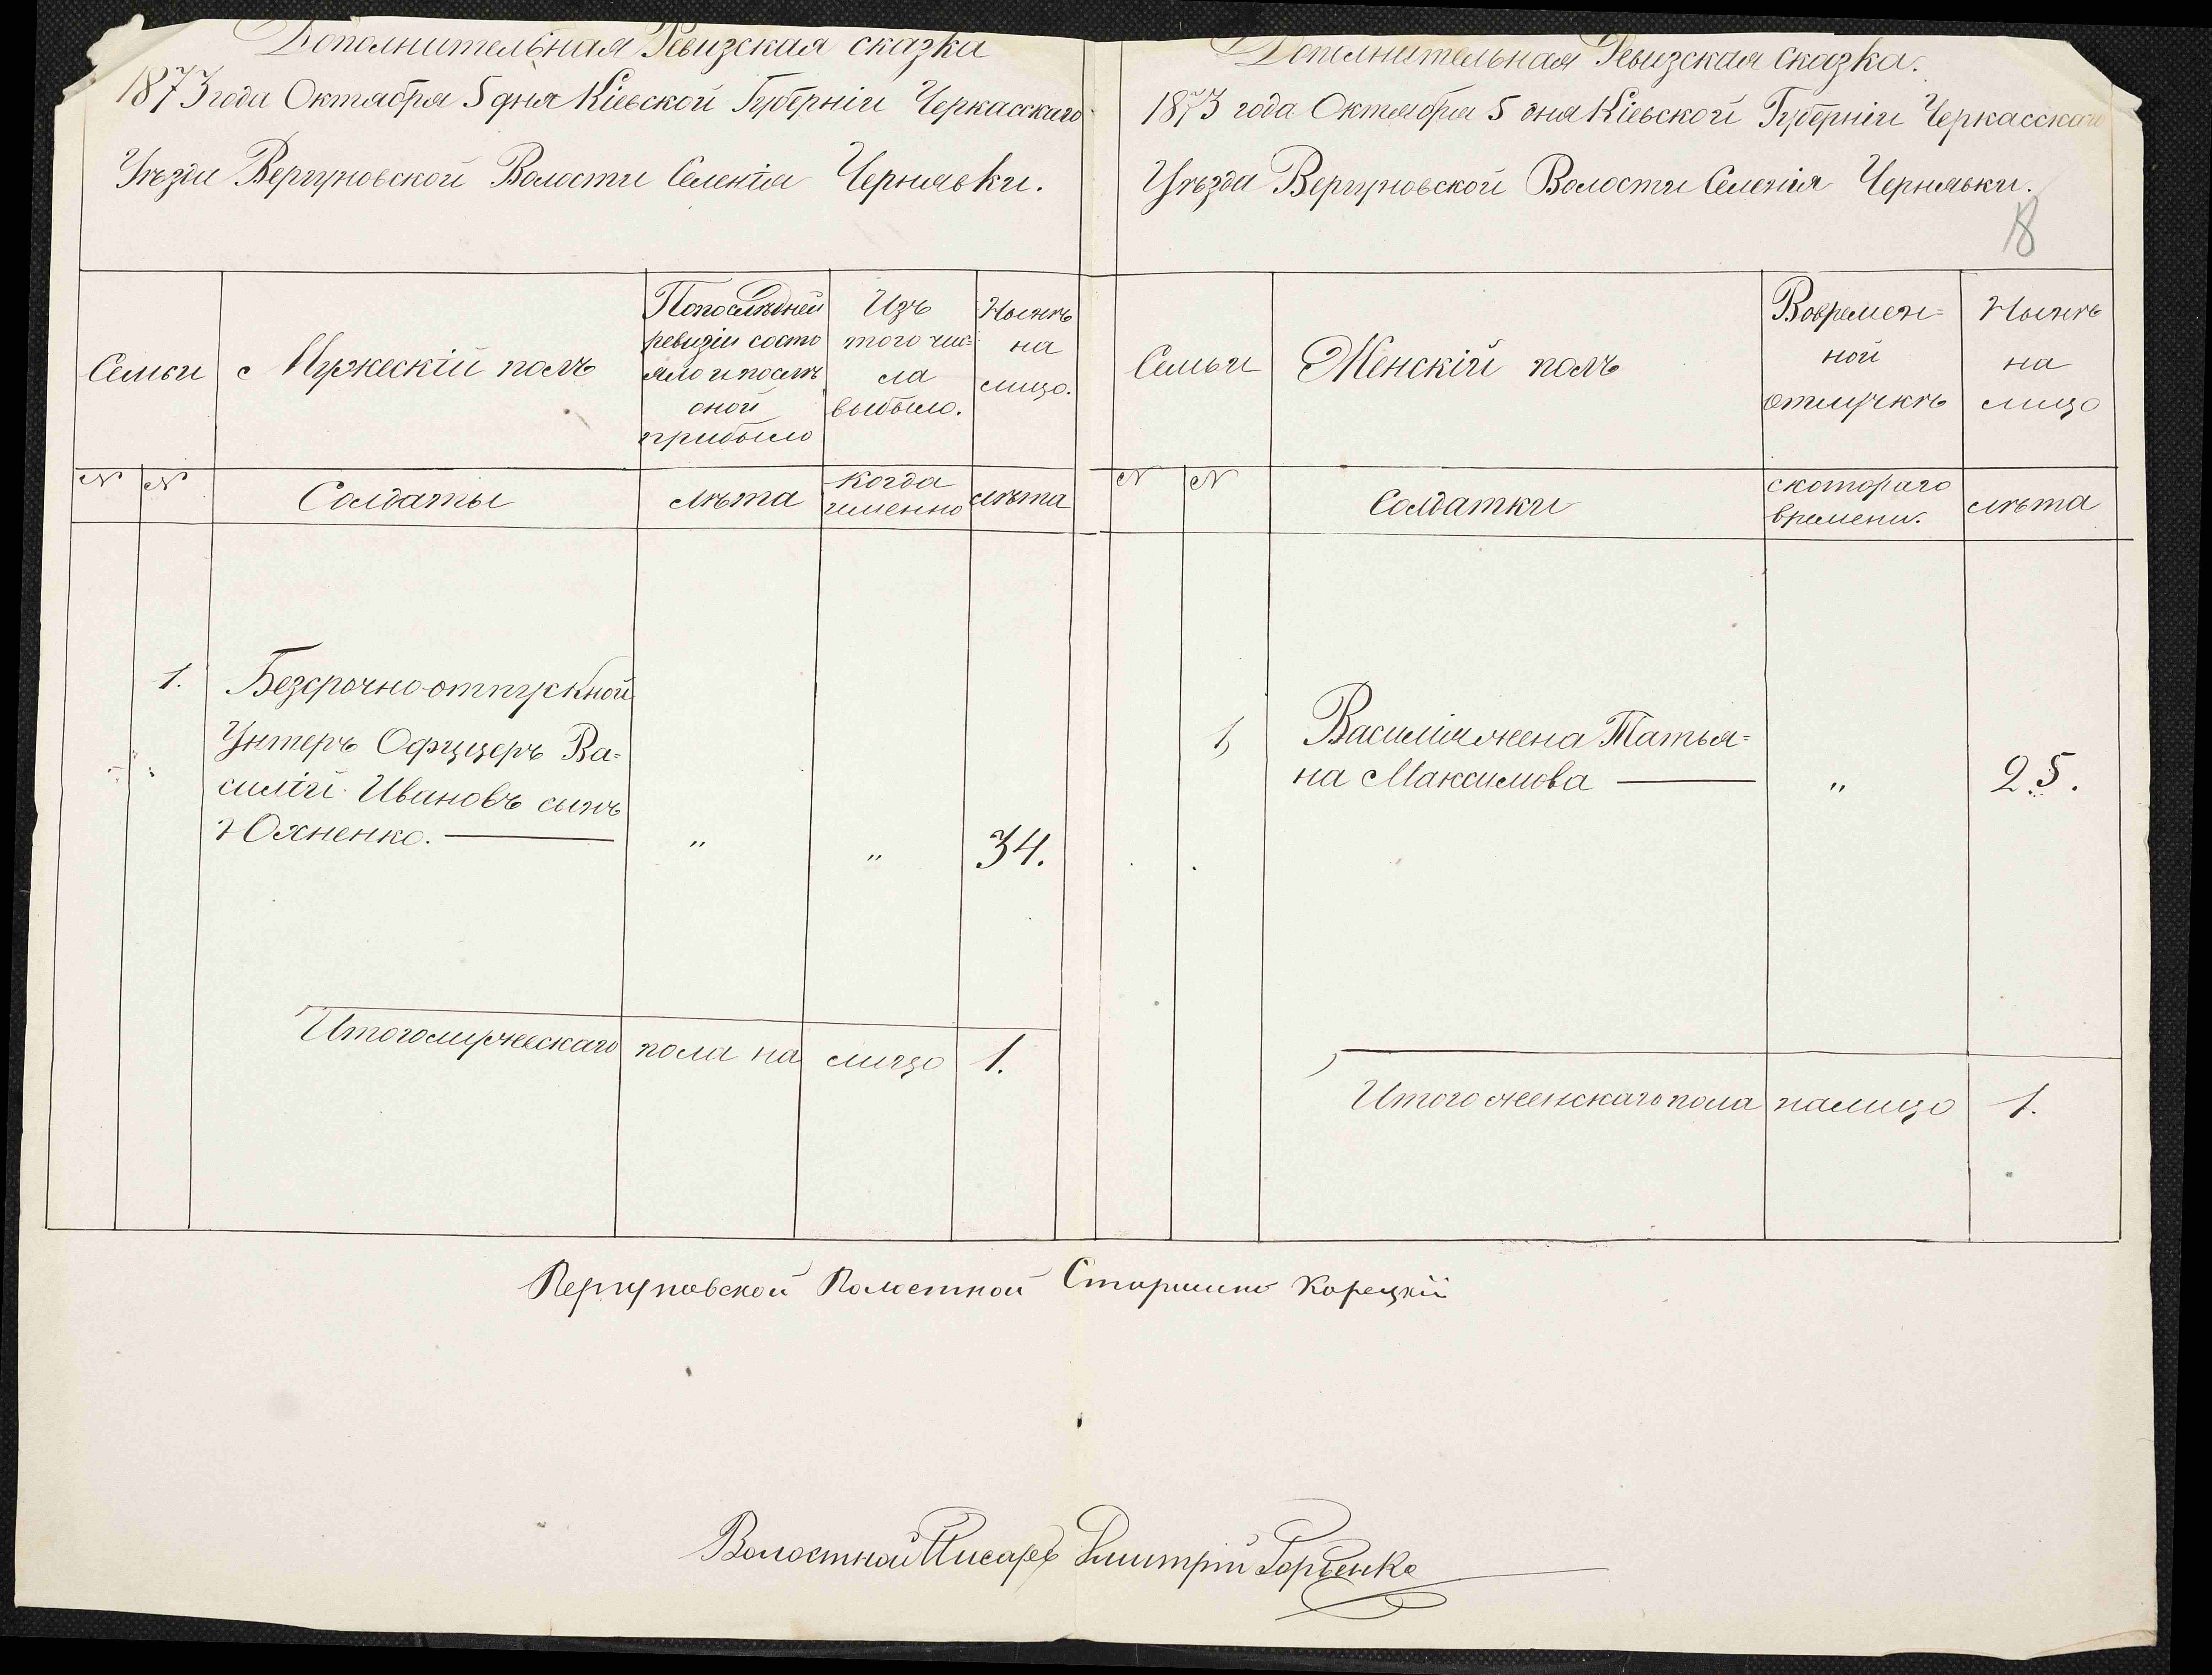 Дополнительная Ревизская сказка
1873 года Октября 5 дня Кіевской Губерніи Черкасскаго
Уѣзда Вергуновской Волости Селенія Чернявки.
Семьи
Мужеский полъ
Попослѣдней
ревизіи состо
яло и послѣ
оной
прибыло
Изъ
того чис=
ла
выбыло.
Нынѣ
на
лицо.
N N
Солдаты
лѣта
когда
именно
лѣта
1. Безсрочно-отпускной
Унтеръ Офицеръ Ва=
силій Ивановъ сынъ
Юхненко. — " " 34.
Итого мужескаго пола на лицо 1.
Дополнительная Ревизская сказка.
1873 года Октября 5 дня Кіевской Губерніи Черкасскаго
Уѣзда Вергуновской Волости Селенія Чернявки.
18
Семьи
Женскій полъ
Вовремен=
ной
отлучкѣ
Нынѣ
на
лицо
N N
Солдатки
скотораго
времени.
лѣта
1, Василія жена Татья=
на Максимова — " 25.
Итого женскаго пола налицо 1.
Вергуновской Волостной Старшина Корецкій
Волостной Писарь Дмитрій Горбенко